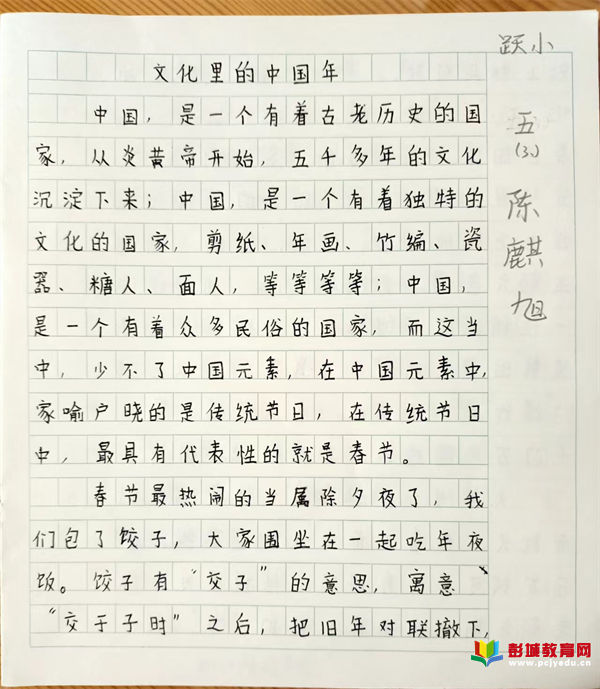 文化里的中国年
中国，是一个有着古老历史的国
家，从炎黄帝开始，五千多年的文化
沉淀下来；中国，是一个有着独特的
文化的国家，剪纸、年画、竹编、瓷
器、糖人、面人，等等等等；中国，
是一个有着众多民俗的国家，而这当
中，少不了中国元素，在中国元素中，
家喻户晓的是传统节日，在传统节日
中，最具有代表性的就是春节。
春节最热闹的当属除夕夜了，我
们包了饺子，大家围坐在一起吃年夜
饭。饺子有“交子”的意思，寓意
“交于子时”之后，把旧年对联撤下，
跃小
五(3)
陈麒旭
彭城教育网
www.pcjyedu.cn